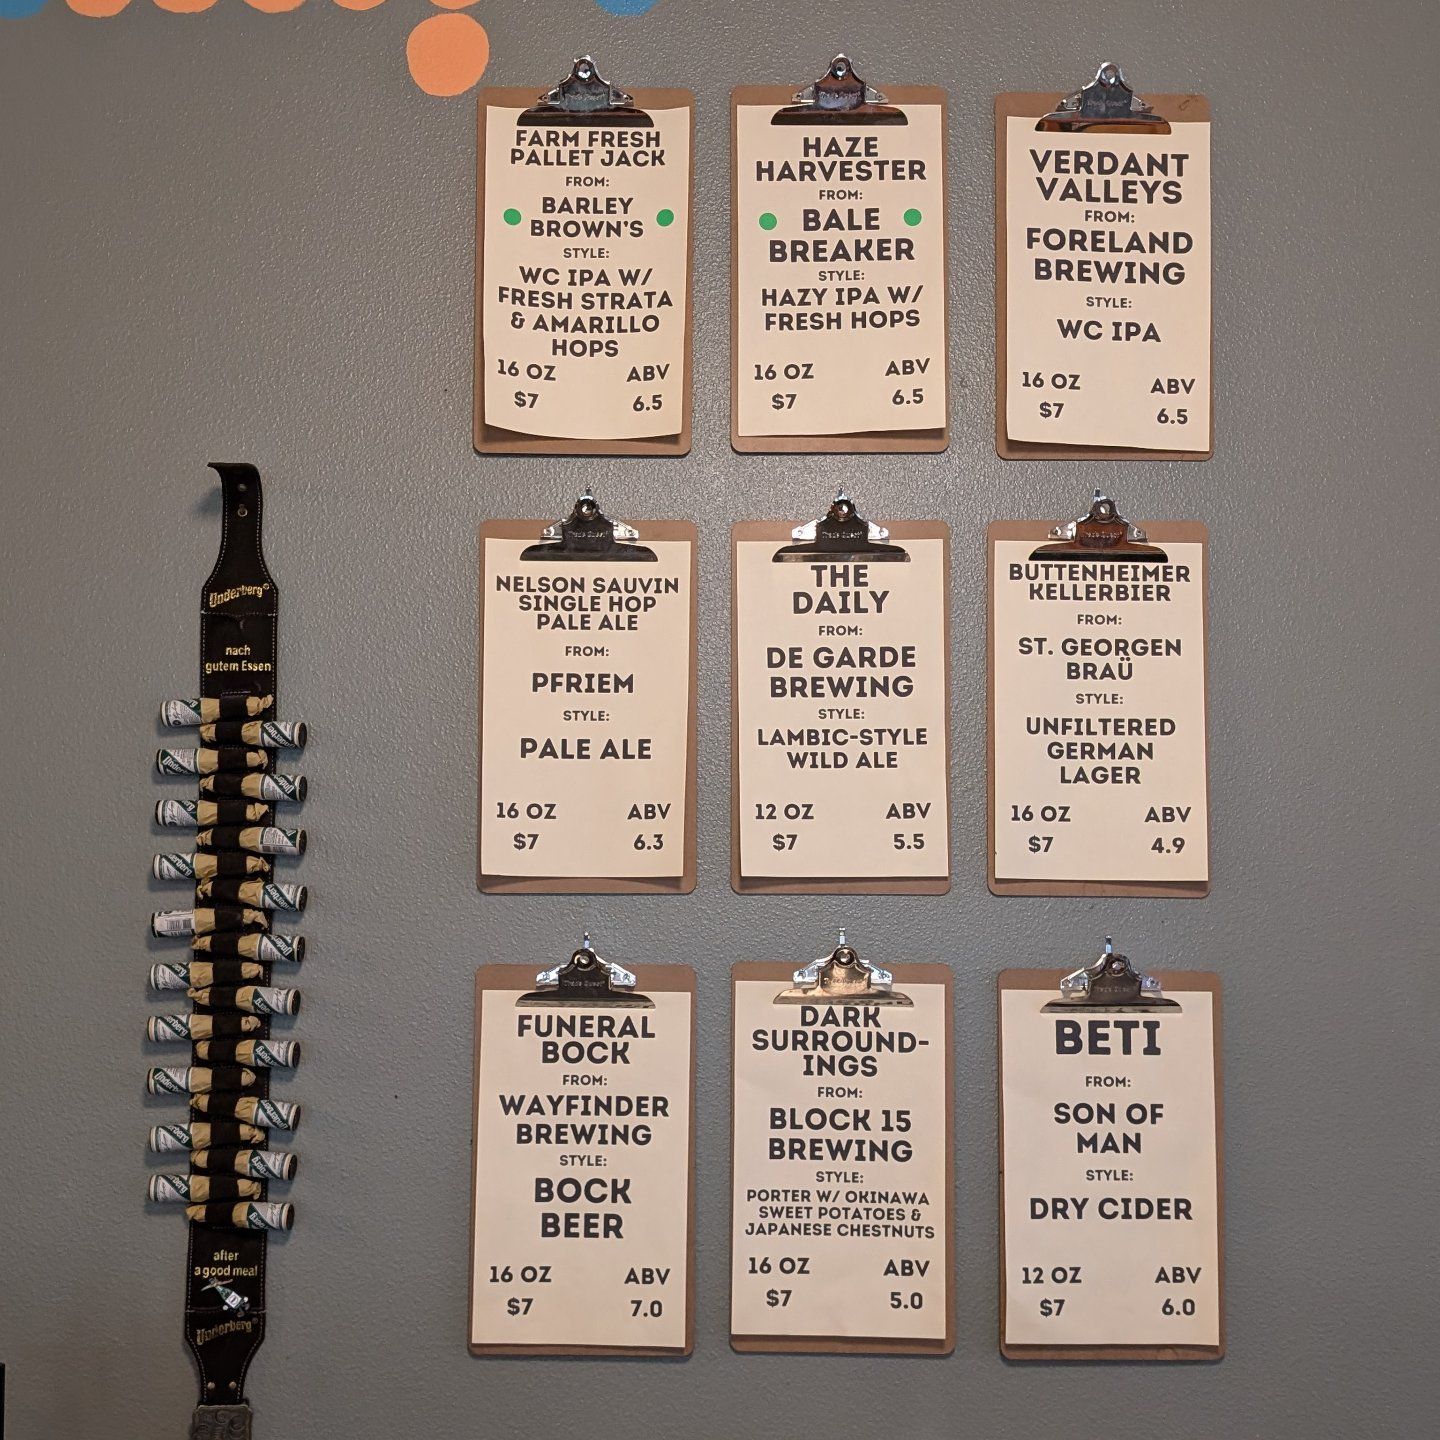 FARM FRESH
PALLET JACK
FROM:
BARLEY
BROWN'S
STYLE:
WC IPA W/
FRESH STRATA
& AMARILLO
HOPS
16 OZ ABV
$7 6.5
HAZE
HARVESTER
FROM:
BALE
BREAKER
STYLE:
HAZY IPA W/
FRESH HOPS
16 OZ ABV
$7 6.5
VERDANT
VALLEYS
FROM:
FORELAND
BREWING
STYLE:
WC IPA
16 OZ ABV
$7 6.5
NELSON SAUVIN
SINGLE HOP
PALE ALE
FROM:
PFRIEM
STYLE:
PALE ALE
16 OZ ABV
$7 6.3
THE
DAILY
FROM:
DE GARDE
BREWING
STYLE:
LAMBIC-STYLE
WILD ALE
12 OZ ABV
$7 5.5
BUTTENHEIMER
KELLERBIER
FROM:
ST. GEORGEN
BRAÜ
STYLE:
UNFILTERED
GERMAN
LAGER
16 OZ ABV
$7 4.9
FUNERAL
BOCK
FROM:
WAYFINDER
BREWING
STYLE:
BOCK
BEER
16 OZ ABV
$7 7.0
DARK
SURROUND-
INGS
FROM:
BLOCK 15
BREWING
STYLE:
PORTER W/ OKINAWA
SWEET POTATOES &
JAPANESE CHESTNUTS
16 OZ ABV
$7 5.0
BETI
FROM:
SON OF
MAN
STYLE:
DRY CIDER
12 OZ ABV
$7 6.0
Underberg®
nach
gutem Essen
after
a good meal
Underberg®